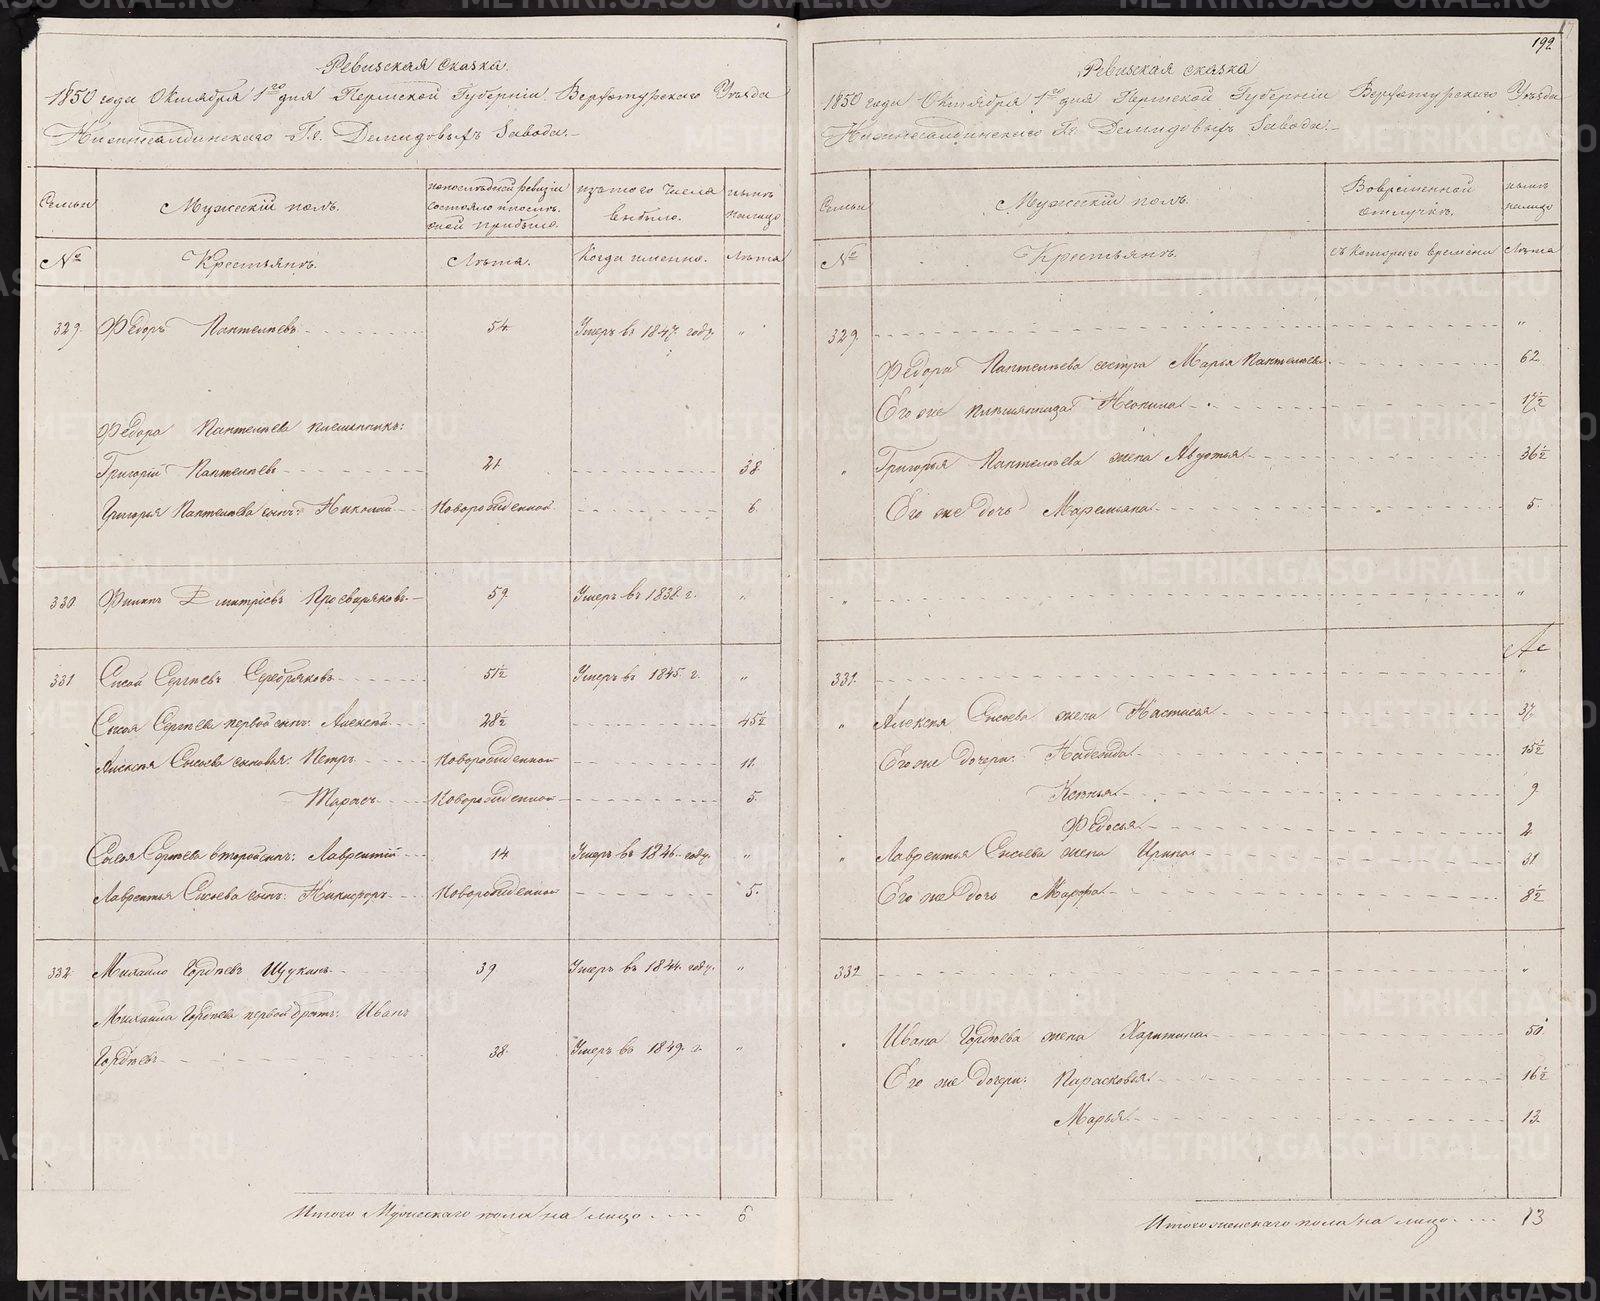 Ревизская сказка.
1850 года Октября 1го дня Пермской Губернiи Верхотурскаго Уѣзда
Нижнесалдинскаго Гг. Демидовыхъ Завода.
Семьи
Мужескiй полъ.
по последней ревизiи
состояло и после
оной прибыло.
изъ того числа
выбыло.
нынѣ
на лицо
№
Крестьянъ.
Лѣта.
Когда именно.
Лѣта
329. Федоръ Пантелѣевъ 54 Умеръ въ 1847. году "
Федора Пантелѣева племянникъ:
Григорiй Пантелѣевъ 21 38
Григорья Пантелѣева сынъ: Николай Новорожденной 6.
330 Филипъ Дмитрiевъ Просвиряковъ. 59. Умеръ въ 1838. г. "
331 Сысой Сергѣевъ Серебряковъ 51½ Умеръ въ 1845. г. "
Сысоя Сергѣева первой сынъ: Алексѣй 28½ 45½
Алексѣя Сысоева сыновья: Петръ Новорожденной 11.
Тарасъ Новорожденной 5.
Сысоя Сергѣева второй сынъ: Лаврентiй 14 Умеръ въ 1846. году. "
Лаврентья Сысоева сынъ: Никифоръ Новорожденной 5.
332 Михайло Гордѣевъ Щукинъ 39 Умеръ въ 1844. году. "
Михаила Гордѣева первой братъ: Иванъ
Гордѣевъ 38. Умеръ въ 1849. г. "
Итого Мужескаго пола на лицо 6
192
Ревизская сказка
1850 года Октября 1го дня Пермской Губернiи Верхотурскаго Уѣзда
Нижнесалдинскаго Гг. Демидовыхъ Завода.
Семьи
Мужескiй полъ.
Во временной
отлучкѣ.
нынѣ
на лицо
№
Крестьянъ.
съ котораго времени
Лѣта
329. "
Федора Пантелѣева сестра Марья Пантелѣева 62
Его же племянница 17½
" Григорья Пантелѣева жена Авдотья 36½
Его же дочь Маремьяна 5.
" "
331. "
" Алексѣя Сысоева жена Настасья 37.
Его же дочери: Надежда 15½
Ксенья 9
Федосья 2
" Лаврентья Сысоева жена Ирина 31
Его же дочь Марфа 8½
332 "
" Ивана Гордѣева жена Харитина 50
Его же дочери: Парасковья 16½
Марья 13.
Итого женскаго пола на лицо 13
METRIKI.GASO-URAL.RU